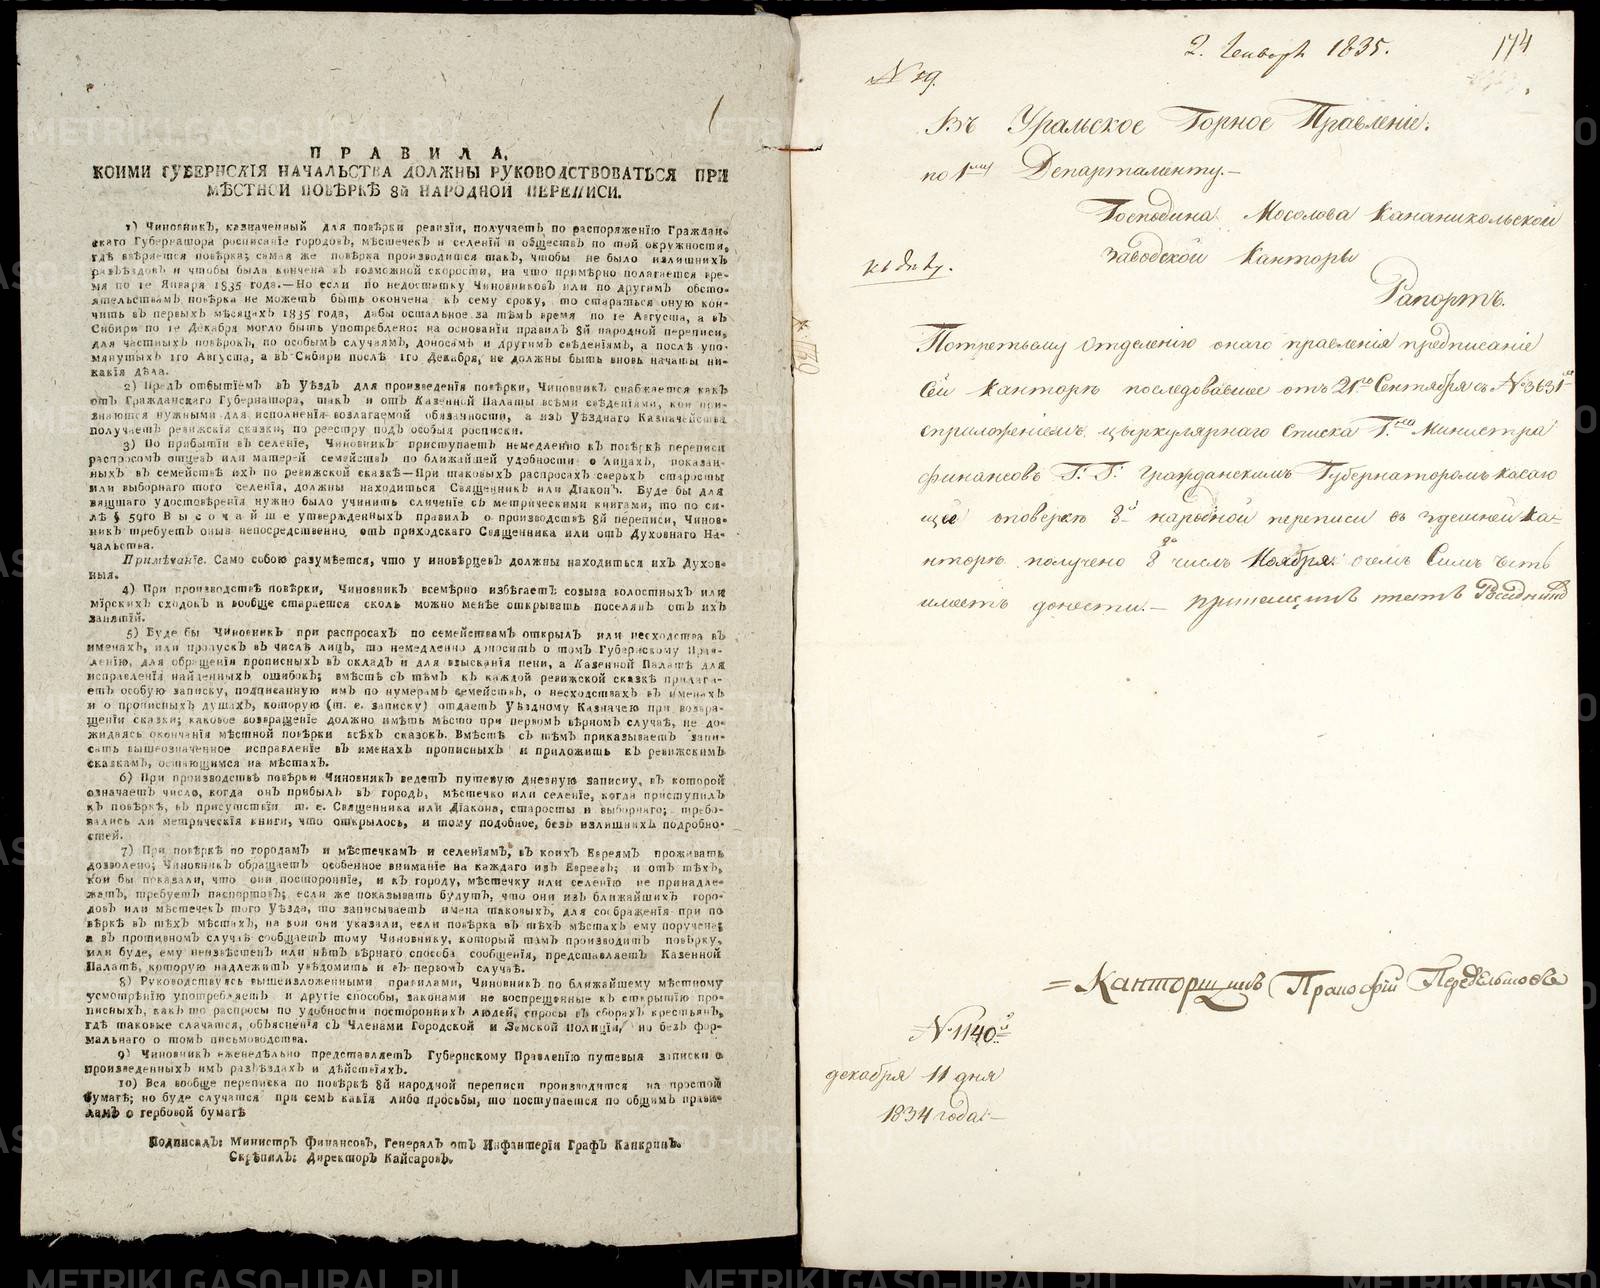 П Р А В И Л А,
КОИМИ ГУБЕРНСКІЯ НАЧАЛЬСТВА ДОЛЖНЫ РУКОВОДСТВОВАТЬСЯ ПРИ
МѢСТНОЙ ПОВѢРКѢ 8й НАРОДНОЙ ПЕРЕПИСИ.
1) Чиновникъ, назначенный для повѣрки ревизіи, получаетъ по распоряженію Граждан-
скаго Губернатора росписаніе городовъ, мѣстечекъ и селеній и обществъ по той окружности,
гдѣ ввѣряется повѣрка; самая же повѣрка производится такъ, чтобы не было излишнихъ
разъѣздовъ и чтобы была кончена въ возможной скорости, на что примѣрно полагается вре-
мя по 1е Января 1835 года.—Но если по недостатку Чиновниковъ или по другимъ обсто-
ятельствамъ повѣрка не можетъ быть окончена къ сему сроку, то стараться оную кон-
чить въ первыхъ мѣсяцахъ 1835 года, дабы остальное за тѣмъ время по 1е Августа, а въ
Сибири по 1е Декабря могло быть употреблено: на основаніи правилъ 8й народной переписи,
для частныхъ повѣрокъ, по особымъ случаямъ, доносамъ и другимъ свѣденіямъ, а послѣ упо-
мянутыхъ 1го Августа, а въ Сибири послѣ 1го Декабря, не должны быть вновь начаты ни-
какія дѣла.
2) Предъ отбытіемъ въ Уѣздъ для произведенія повѣрки, Чиновникъ снабжается какъ
отъ Гражданскаго Губернатора, такъ и отъ Казенной Палаты всѣми свѣденіями, кои при-
знаются нужными для исполненія возлагаемой обязанности, а изъ Уѣзднаго Казначейства
получаетъ ревижскія сказки, по реестру подъ особыя росписки.
3) По прибытіи въ селеніе, Чиновникъ приступаетъ немедленно къ повѣркѣ переписи
распросомъ отцевъ или матерей семействъ по ближайшей удобности о лицахъ, показан-
ныхъ въ семействѣ ихъ по ревижской сказкѣ—При таковыхъ распросахъ сверхъ старосты
или выборнаго того селенія, должны находиться Священникъ или Діаконъ. Буде бы для
вящшаго удостовѣренія нужно было учинить сличеніе съ метрическими книгами, то по си-
лѣ § 59го В ы с о ч а й ш е утвержденныхъ правилъ о производствѣ 8й переписи, Чинов-
никъ требуетъ оныя непосредственно отъ приходскаго Священника или отъ Духовнаго На-
чальства.
Примѣчаніе. Само собою разумѣется, что у иновѣрцевъ должны находиться ихъ Духов-
ныя.
4) При производствѣ повѣрки, Чиновникъ всемѣрно избѣгаетъ созыва волостныхъ или
мірскихъ сходокъ и вообще старается сколь можно менѣе открывать поселянъ отъ ихъ
занятій.
5) Буде бы Чиновникъ при распросахъ по семействамъ открылъ или несходства въ
именахъ, или пропускъ въ числѣ лицъ, то немедленно доноситъ о томъ Губернскому Прав-
ленію, для обращенія прописныхъ въ окладъ и для взысканія пени, а Казенной Палатѣ для
исправленія найденныхъ ошибокъ; вмѣстѣ съ тѣмъ къ каждой ревижской сказкѣ прилага-
етъ особую записку, подписанную имъ по нумерамъ семействъ, о несходствахъ въ именахъ
и о прописныхъ душахъ, которую (т. е. записку) отдаетъ Уѣздному Казначею при возвра-
щеніи сказки; каковое возвращеніе должно имѣть мѣсто при первомъ вѣрномъ случаѣ, не до-
жидаясь окончанія мѣстной повѣрки всѣхъ сказокъ. Вмѣстѣ съ тѣмъ приказываетъ запи-
сать вышеозначенное исправленіе въ именахъ прописныхъ и приложить къ ревижскимъ
сказкамъ, остающимся на мѣстахъ.
6) При производствѣ повѣрки Чиновникъ ведетъ путевую дневную записку, въ которой
означаетъ число, когда онъ прибылъ въ городъ, мѣстечко или селеніе, когда приступилъ
къ повѣркѣ, въ присутствіи т. е. Священника или Діакона, старосты и выборнаго; требо-
вались ли метрическія книги, что открылось, и тому подобное, безъ излишнихъ подробно-
стей.
7) При повѣркѣ по городамъ и мѣстечкамъ и селеніямъ, въ коихъ Евреямъ проживать
дозволено; Чиновникъ обращаетъ особенное вниманіе на каждаго изъ Евреевъ; и отъ тѣхъ,
кои бы показали, что они посторонніе, и къ городу, мѣстечку или селенію не принадле-
жатъ, требуетъ паспортовъ; если же показывать будутъ, что они изъ ближайшихъ горо-
довъ или мѣстечекъ того Уѣзда, то записываетъ имена таковыхъ, для соображенія при по
вѣркѣ въ тѣхъ мѣстахъ, на кои они указали, если повѣрка въ тѣхъ мѣстахъ ему поручена;
а въ противномъ случаѣ сообщаетъ тому Чиновнику, который тамъ производитъ повѣрку,
или буде, ему неизвѣстенъ или нѣтъ вѣрнаго способа сообщенія, представляетъ Казенной
Палатѣ, которую надлежитъ увѣдомить и въ первомъ случаѣ.
8) Руководствуясь вышеизложенными правилами, Чиновникъ по ближайшему мѣстному
усмотрѣнію употребляетъ и другіе способы, законами не воспрещенные къ открытію про-
писныхъ, какъ то распросы по удобности постороннихъ людей, спросы въ сборахъ крестьянъ,
гдѣ таковые случатся, объясненія съ Членами Городской и Земской Полиціи, но безъ фор-
мальнаго о томъ письмоводства.
9) Чиновникъ еженедѣльно представляетъ Губернскому Правленію путевыя записки о
произведенныхъ имъ разъѣздахъ и дѣйствіяхъ.
10) Вся вообще переписка по повѣркѣ 8й народной переписи производится на простой
бумагѣ; но буде случатся при семъ какія либо просьбы, то поступается по общимъ прави-
ламъ о гербовой бумагѣ
Подписалъ: Министръ Финансовъ, Генералъ отъ Инфантеріи Графъ Канкринъ.
Скрѣпилъ: Директоръ Кайсаровъ.
2. Генваря 1835.
174
№ 29.
Въ Уральское Горное Правленіе.
по 1му Департаменту.—
Господина Мосолова Кананикольской
заводской Канторы
къ дѣлу.
Рапортъ.
Потретьему отделению онаго правления предписание
Сей Канторѣ последовавшее отъ 21го Сентября съ № 3631мъ
сприложениемъ цыркулярнаго списка Г.на Министра
финансовъ Г: Г: гражданскимъ Губернаторомъ касаю
щее оповерке 8й народной переписи въ здешней Ка-
нторе получено 8го числ Ноября: очемъ Симъ честь
имеетъ донести.—
=Канторщикъ Прокофій Передельщовъ
№ 1140й
декабря 11 дня
1834 года:—
METRIKI.GASO-URAL.RU